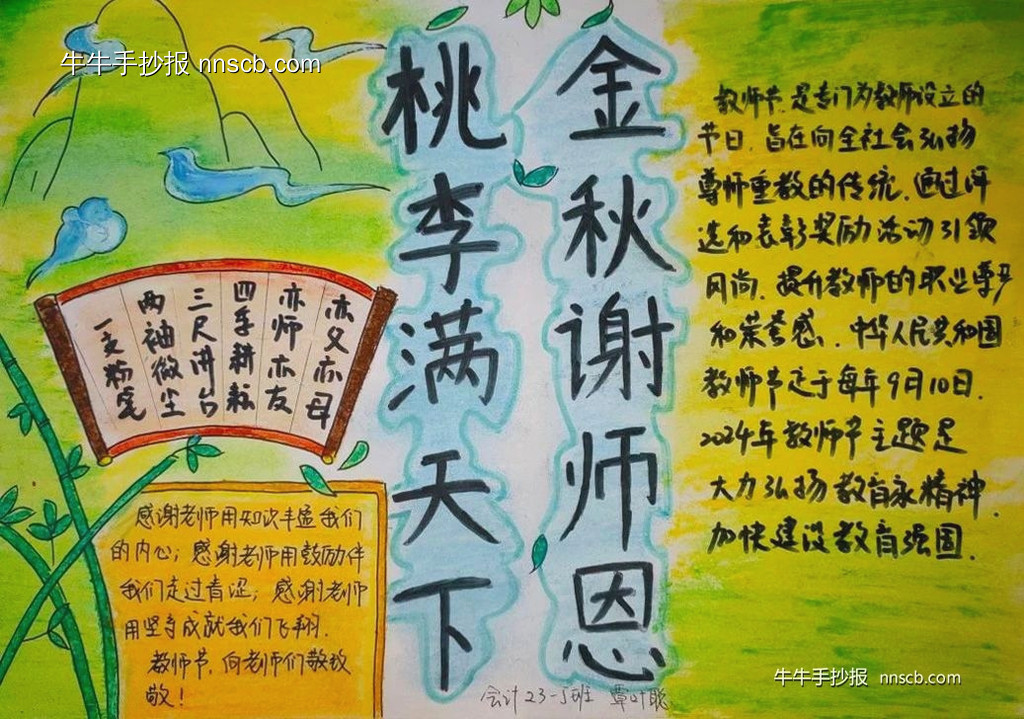 牛牛手抄报 nnscb.com
金秋谢师恩
桃李满天下
教师节,是专门为教师设立的
节日,旨在向全社会弘扬
尊师重教的传统,通过评
选和表彰奖励活动引领
风尚,提升教师的职业尊严
和荣誉感.中华人民共和国
教师节定于每年9月10日.
2024年教师节主题是
大力弘扬教育家精神,
加快建设教育强国.
亦父亦母
亦师亦友
四季耕耘
三尺讲台
两袖微尘
一支粉笔
感谢老师用知识丰盈我们
的内心;感谢老师用鼓励伴
我们走过青涩;感谢老师
用坚守成就我们飞翔.
教师节,向老师们敬致
敬!
会计23-5班 覃叶聪
牛牛手抄报 nnscb.com